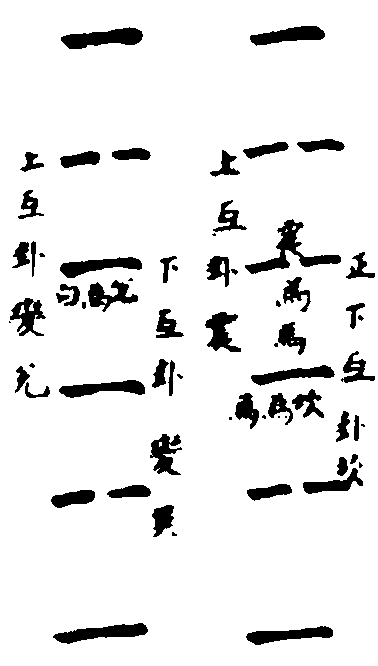 正下互卦坎
震為馬
坎為馬
上互卦震
下互卦變巽
兌為口
上互卦變兌